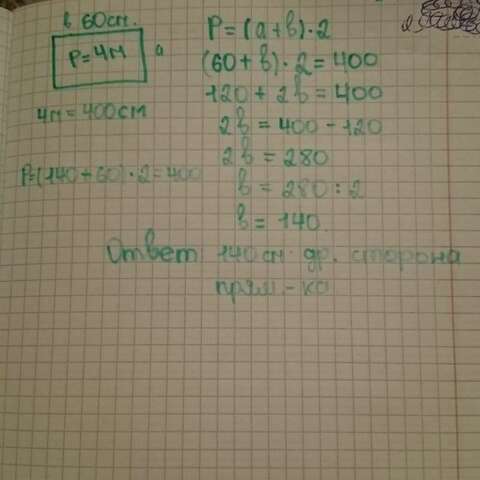 в 60см.
P=4м a
4м=400см
P=(140+60)·2=400
P=(a+в)·2
(60+в)·2=400
120+2в=400
2в=400-120
2в=280
в=280:2
в=140.
Ответ 140см др. сторона
прям.-ка